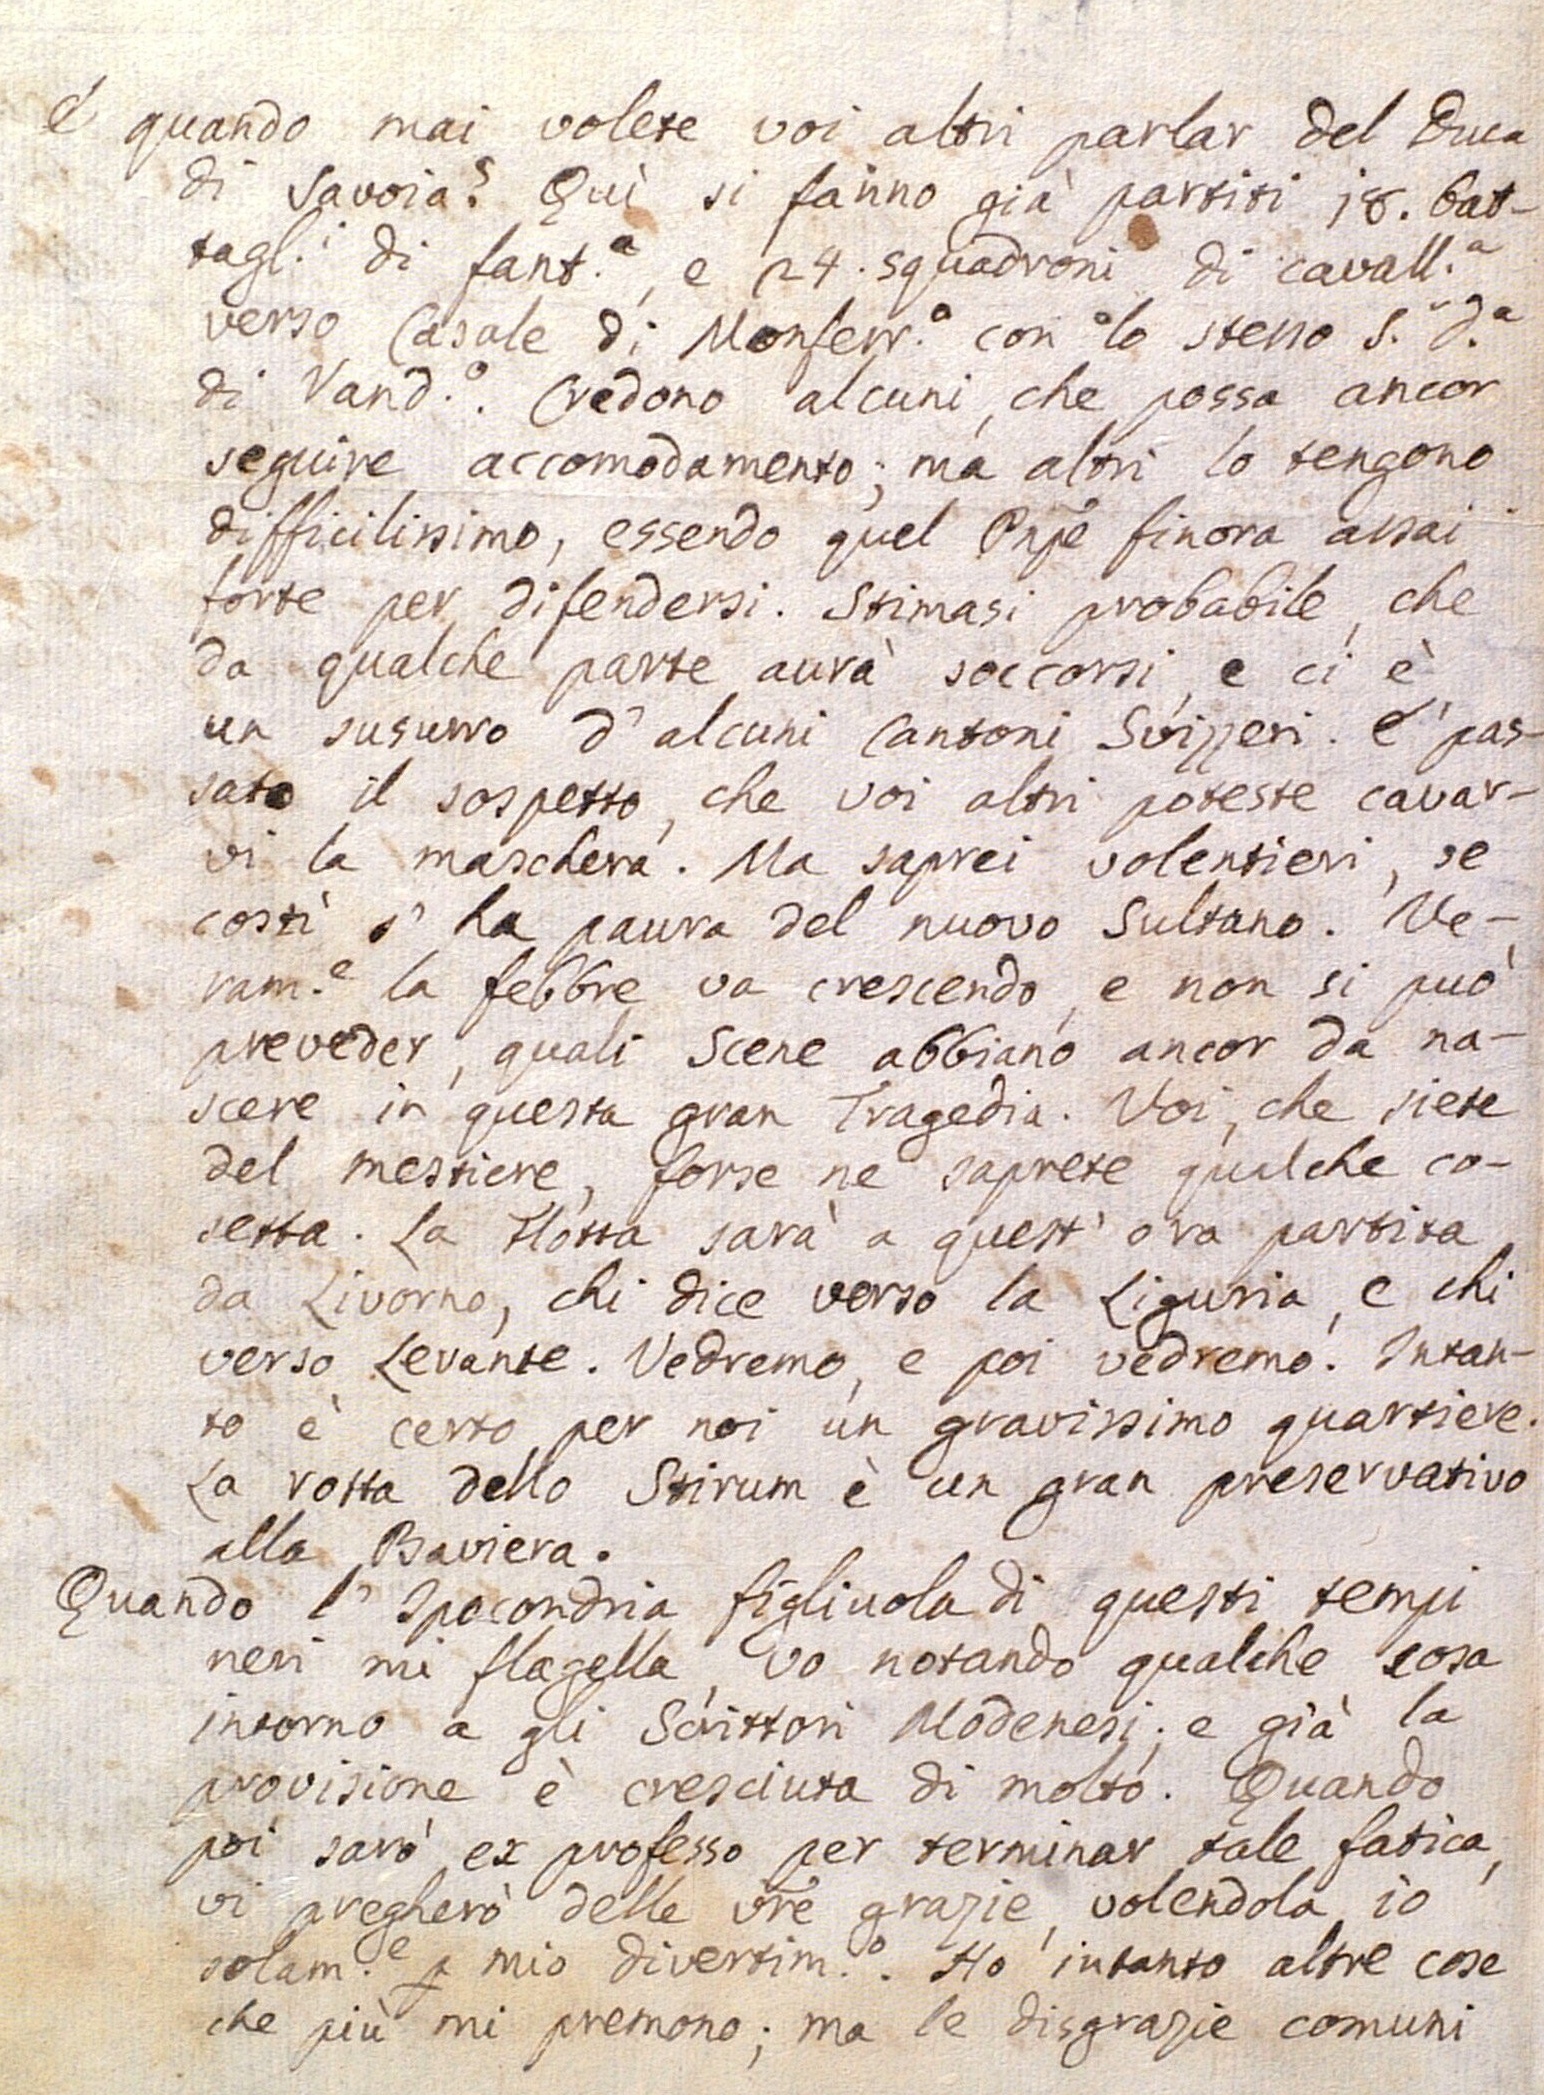 E quando mai volete voi altri parlar del Duca
di Savoia? Quì si fanno già partiti 18. bat-
tagl.i di fant.a, e 24. squadroni di cavall.a
verso Casale di Monferr.o con lo stesso S.r d.a
di Vand.o. Credono alcuni, che possa ancor
seguire accomodamento; ma altri lo tengono
difficilissimo, essendo quel Pnpe finora assai
forte per difendersi. Stimasi probabile, che
da qualche parte aurà soccorsi, e ci è
un susurro d'alcuni Cantoni Svizzeri. E' pas-
sato il sospetto, che voi altri poteste cavar-
vi la maschera. Ma saprei volentieri, se
costì s'ha paura del nuovo Sultano. Ve-
ram.e la febbre va crescendo, e non si può
preveder, quali Scene abbiano ancor da na-
scere in questa gran Tragedia. Voi, che siete
del mestiere, forse ne saprete qualche co-
setta. La Flotta sarà a quest'ora partita
da Livorno, chi dice verso la Liguria, e chi
verso Levante. Vedremo, e poi vedremo. Intan-
to è certo per noi un gravissimo quartiere.
La rotta dello Stirum è un gran preservativo
alla Baviera.
Quando l'Ipocondria figliuola di questi tempi
neri mi flagella, vo notando qualche cosa
intorno a gli Scrittori Modenesi; e già la
provisione è cresciuta di molto. Quando
poi sarò ex professo per terminar tale fatica,
vi pregherò delle vre grazie, volendola io
solam.e p mio divertim.o. Ho intanto altre cose
che più mi premono; ma le disgrazie comuni